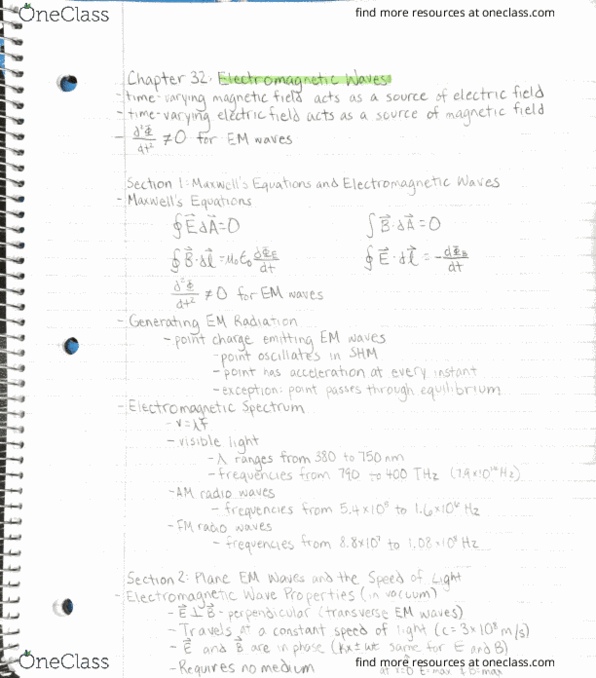 OneClass
find more resources at oneclass.com
Chapter 32: Electromagnetic Waves
- time-varying magnetic field acts as a source of electric field
- time-varying electric field acts as a source of magnetic field
- d²Φ/dt² ≠ 0 for EM waves
Section 1: Maxwell's Equations and Electromagnetic Waves
- Maxwell's Equations
∮E⃗dA⃗=0 ∫B⃗·dA⃗=0
∮B⃗·dl⃗=μ₀ε₀ dΦE/dt ∮E⃗·dl⃗=-dΦB/dt
d²Φ/dt² ≠ 0 for EM waves
- Generating EM Radiation
- point charge emitting EM waves
- point oscillates in SHM
- point has acceleration at every instant
- exception: point passes through equilibrium
- Electromagnetic Spectrum
- v=λf
- visible light
- λ ranges from 380 to 750 nm
- frequencies from 790 to 400 THz (7.9×10¹⁴ Hz)
- AM radio waves
- frequencies from 5.4×10⁵ to 1.6×10⁶ Hz
- FM radio waves
- frequencies from 8.8×10⁷ to 1.08×10⁸ Hz
Section 2: Plane EM Waves and the Speed of Light
- Electromagnetic Wave Properties (in vacuum)
- E⃗⊥B⃗ - perpendicular (transverse EM waves)
- Travels at a constant speed of light (c=3×10⁸ m/s)
- E⃗ and B⃗ are in phase (kx±wt same for E and B)
- Requires no medium
OneClass
find more resources at oneclass.com